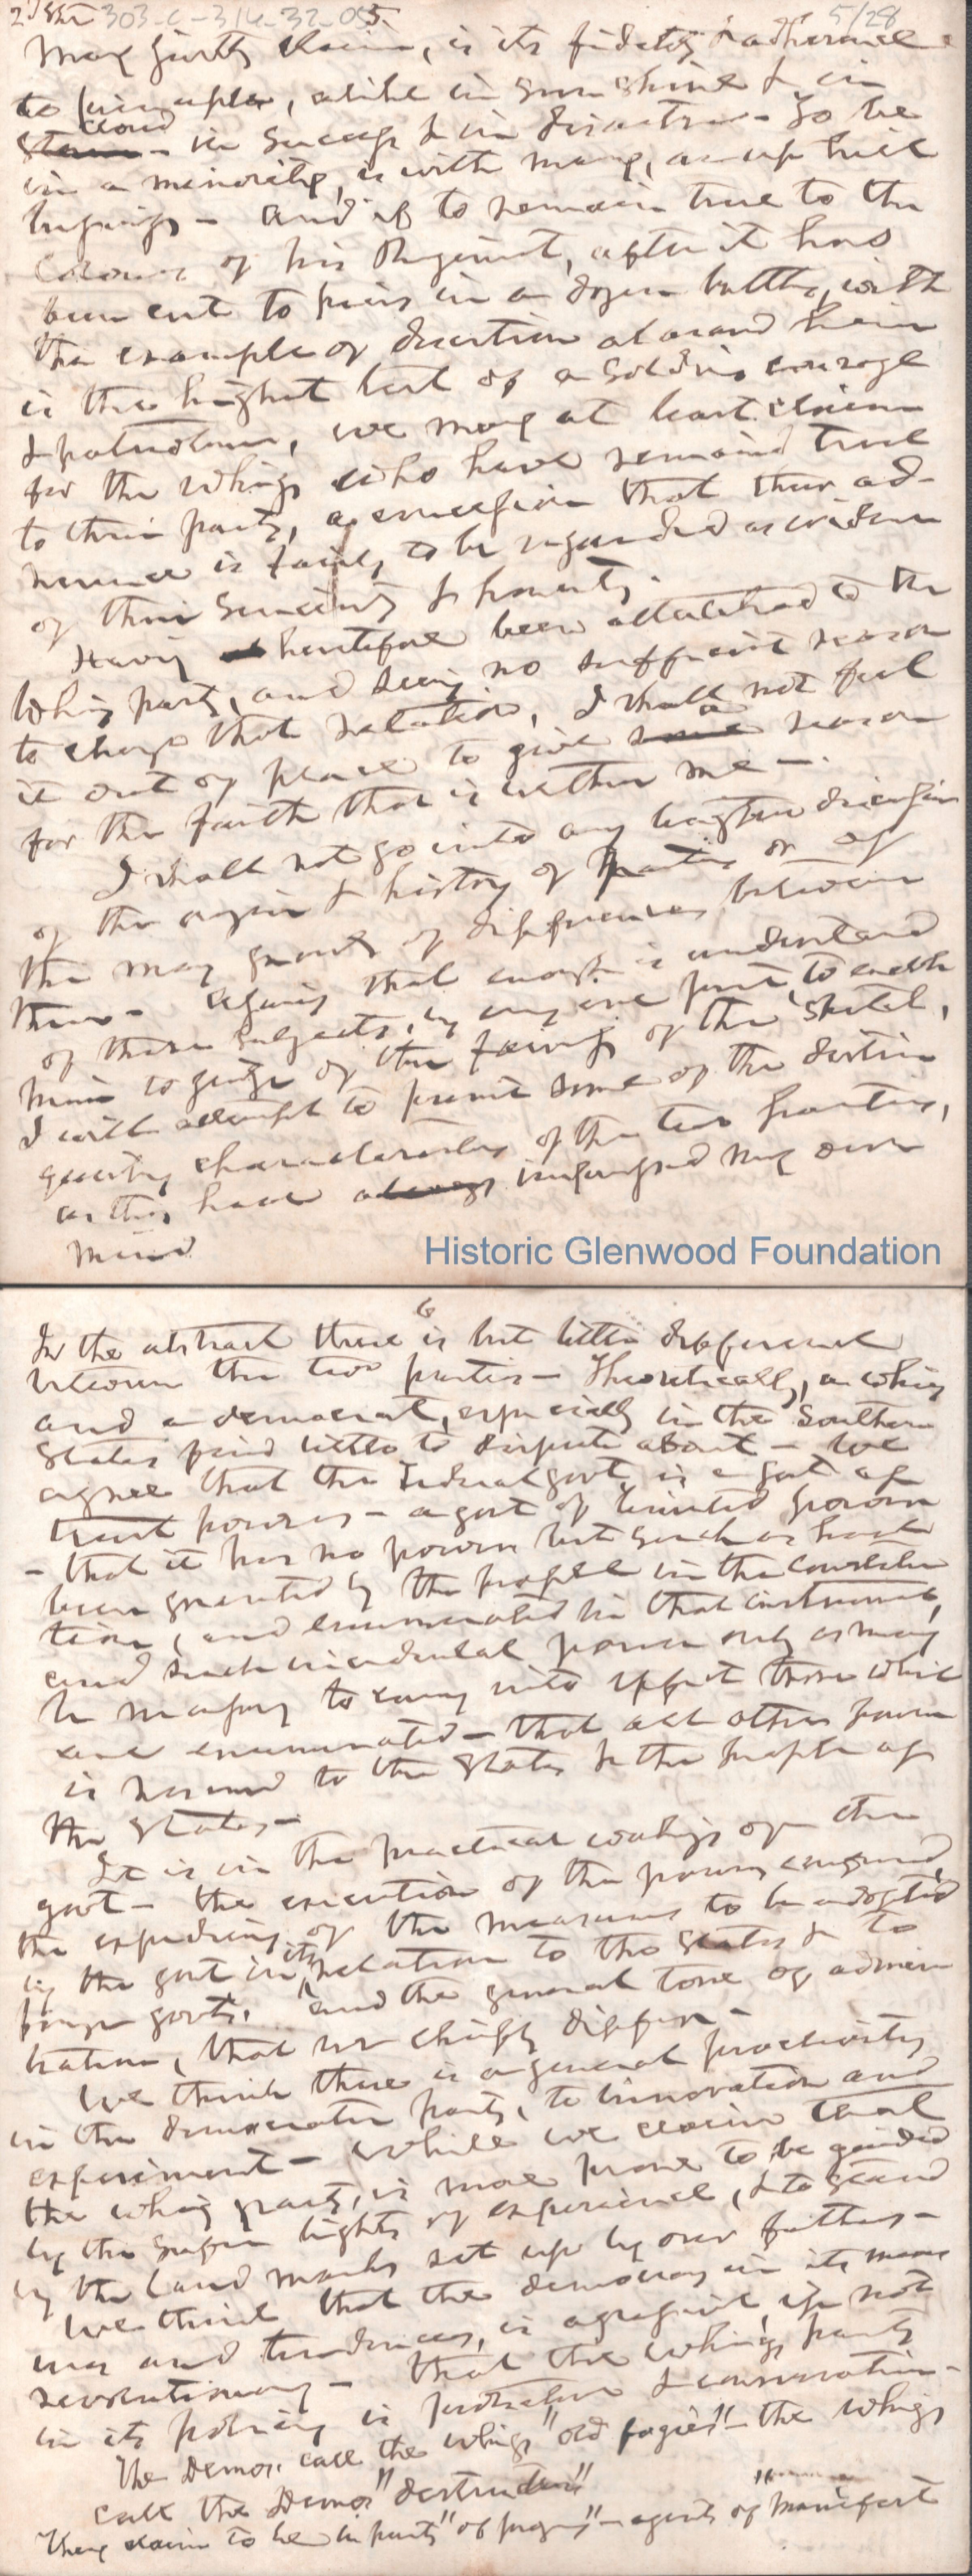 303-C-314-32-05 5/28
may justly claim, is its fidelity & adherence
to principles, alike in sunshine & in
cloud
storm - in success & in disaster - To be
in a minority, is with many, an up hill
business - and if to remain true to the
Colours of his Regiment, after it has
been cut to pieces in a dozen battles, with
the example of desertion around him
is the highest test of a soldiers courage
& patriotism, we may at least claim
for the whigs who have remained true
to their party, a concession that their ad-
herence is fairly to be regarded as evidence
of their sincerity & honesty.
Having heretofore been attached to the
Whig party, and seeing no sufficient reason
to change that relation, I shall not feel
a
it out of place to give some reason
for the faith that is within me -
I shall not go into any lengthy discussion
of the origin & history of parties or of
the many grounds of differences between
them - that enough is understood
of these subjects, by any one present to enable
him to judge of the fairness of the sketch,
I will attempt to present some of the distin
guishing characteristics of the two parties,
as they have always impressed my own
mind
Historic Glenwood Foundation
6
In the abstract there is but little difference
between the two parties - Theoretically, a whig
and a democrat, especially in the Southern
States find little to dispute about - We
agree that the Federal govt. is a govt of
trust powers - a govt of limited powers
- that it has no powers but such as have
been granted by the people in the Constitu
tion, and enumerated in that instrument,
and such incidental powers only as may
be necessary to carry into effect those which
are enumerated - that all other power
is reserved to the States & the people of
the States -
It is in the practical workings of the
govt - the execution of the powers conferred,
the expediency of the measures to be adopted
by the govt in its relation to the States & to
foreign govts, and the general tone of admin
istration, that we chiefly differ -
We think there is a general proclivity
in the democratic party, to innovation and
experiment - while we claim that
the whig party, is more prone to be guided
by the safer lights of experience, & to stand
by the land marks set up by our fathers -
We think that the democracy in its meas
ures and tendencies, is aggressive, if not
revolutionary - that the whig party
in its policy is protective & conservative -
The Demos. call the whigs "old fogies" - the whigs
call the Demos "destructives"
They claim to be a party "of progress" - agents of "manifest